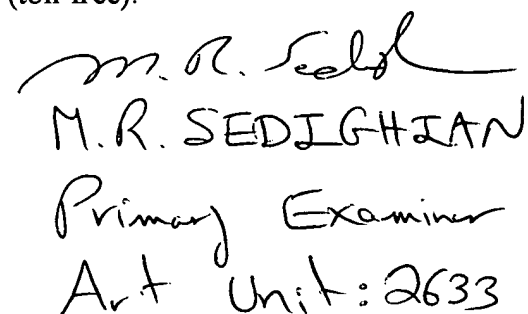 (toll-free).
M. R. Sedigh
M.R. SEDIGHIAN
Primary Examiner
Art Unit: 2633